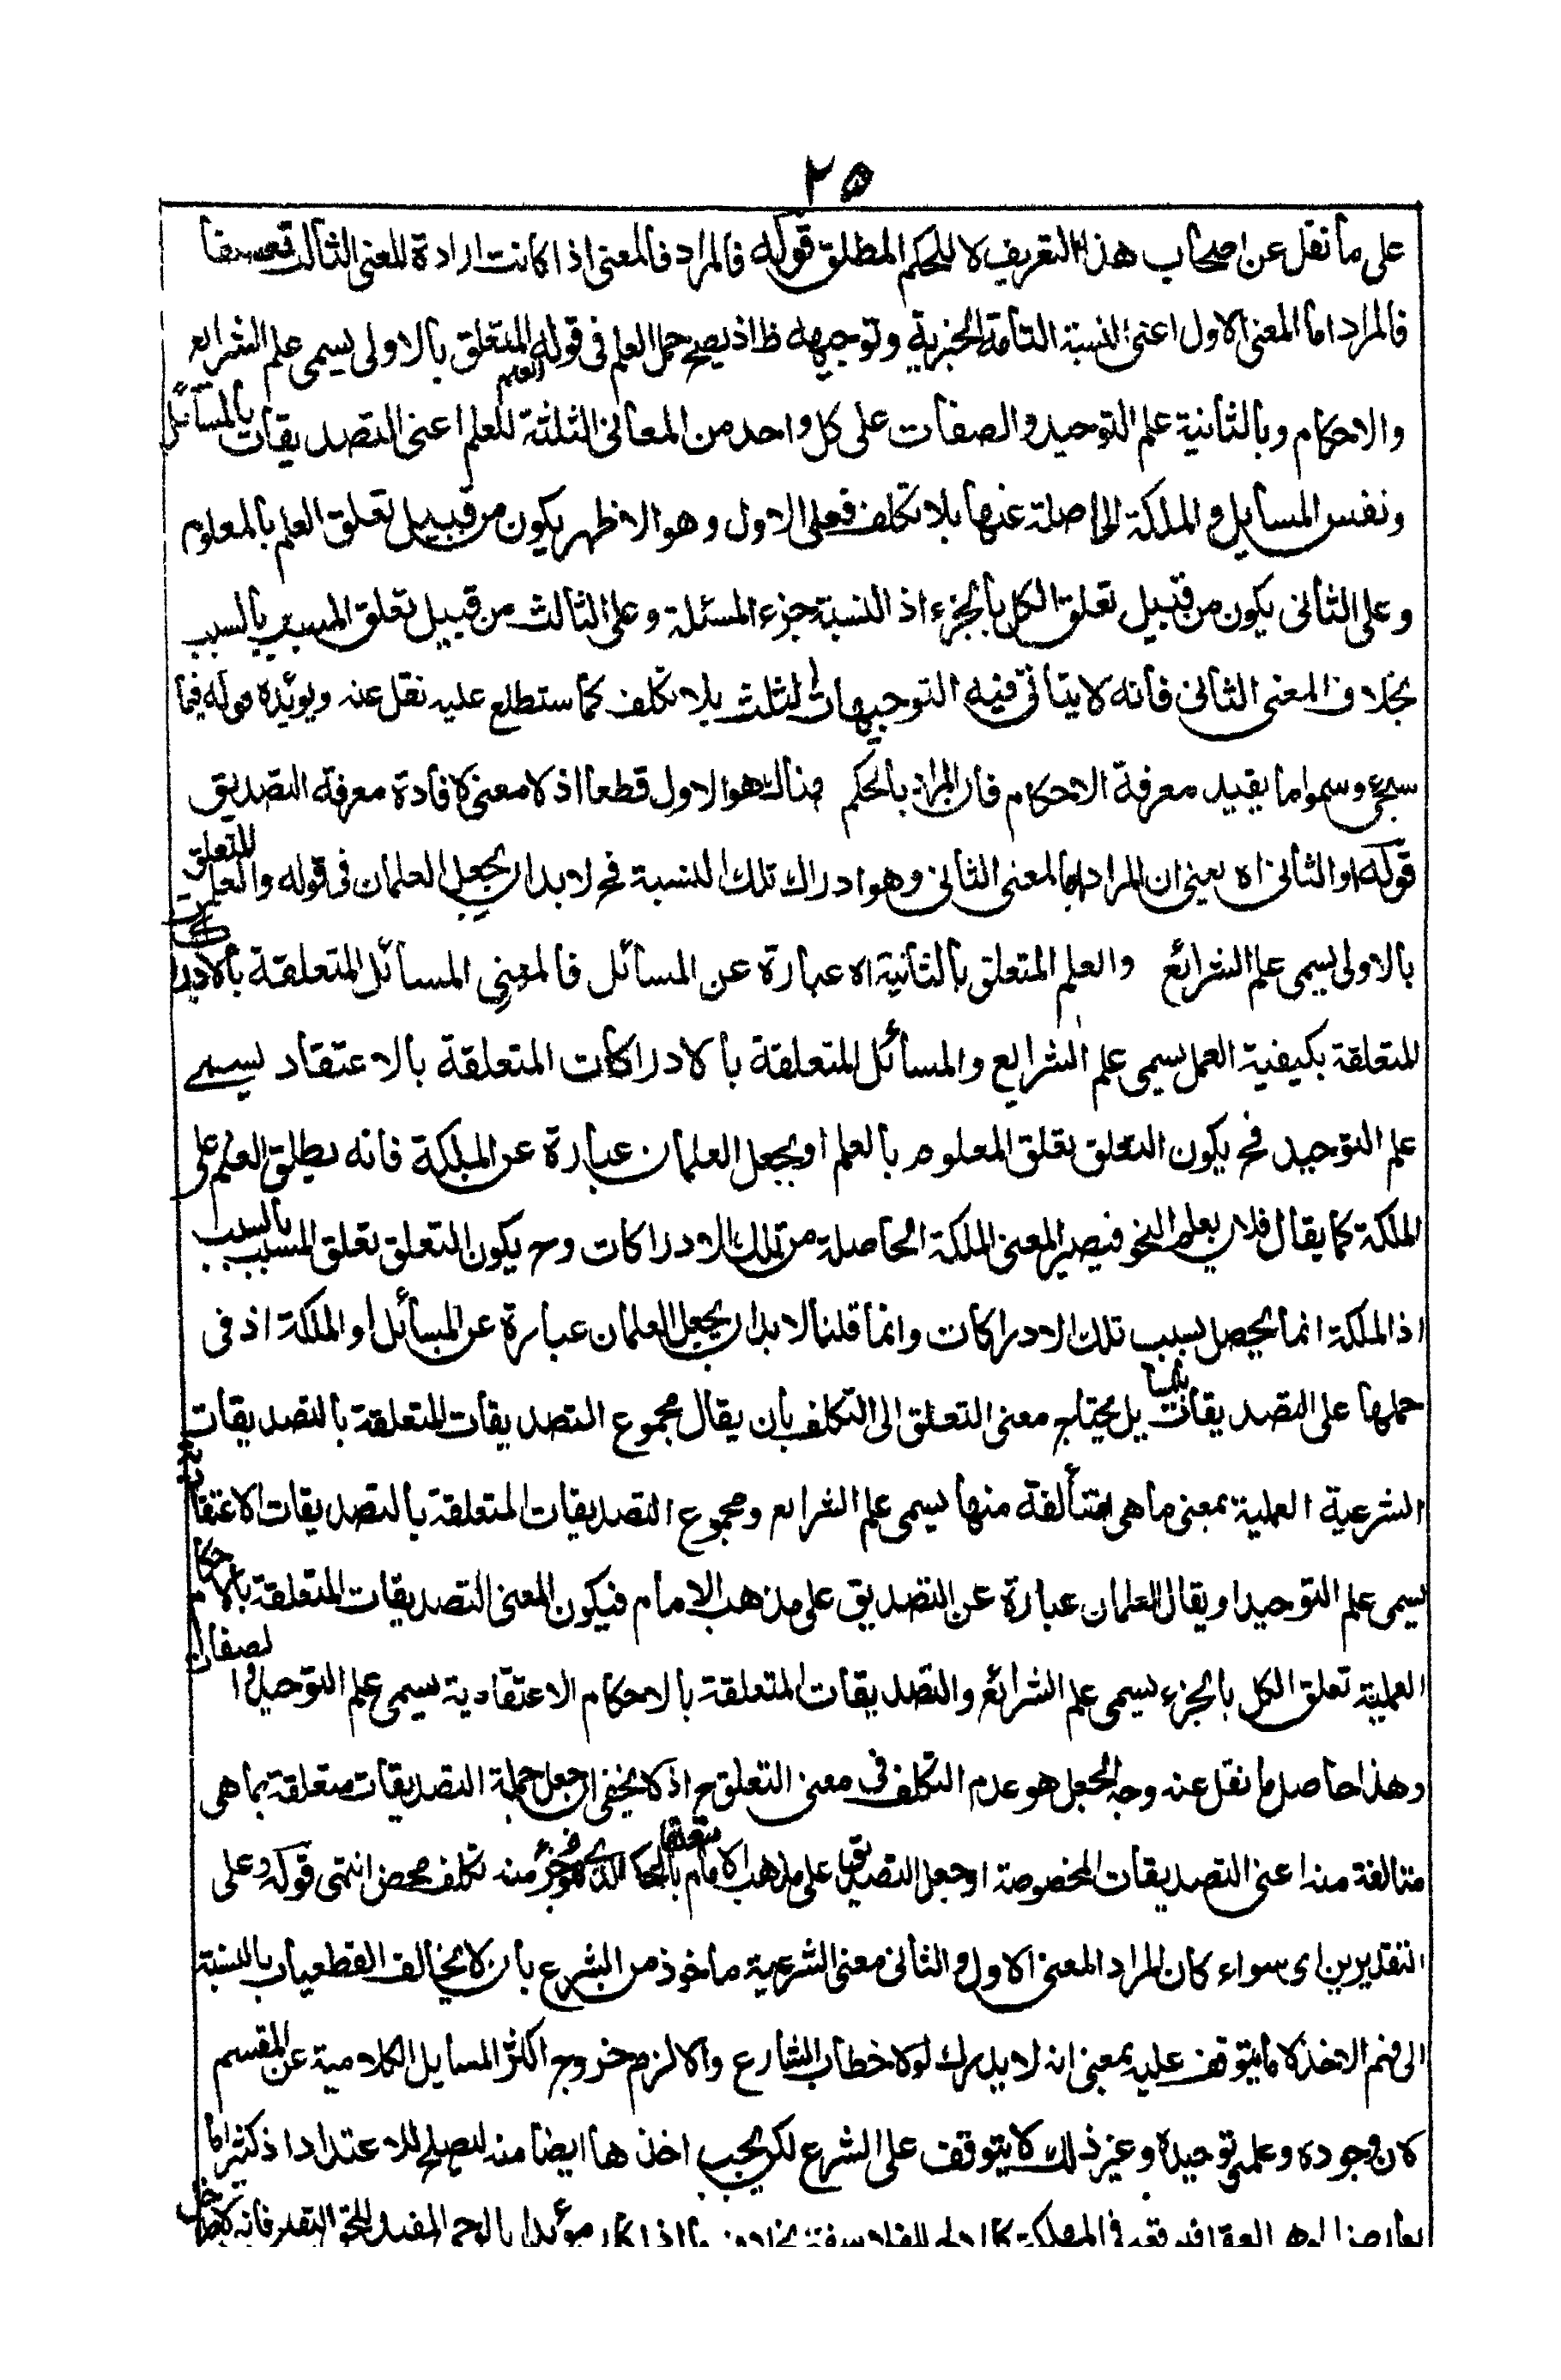 ٢٥
على ما نقل عن اصحاب هذا التعريف لا للحكم المطلق قوله فالمراد فالمعنى اذا كانت ارادة للمعنى الثالث تعسفا
فالمراد اما المعنى الاول اعنى النسبة التامة الخبرية وتوجيهه ظ اذ يصح حمل العلم فى قوله العلم المتعلق بالاولى يسمى علم الشرايع
والاحكام وبالثانية علم التوحيد والصفات على كل واحد من المعانى الثلثة للعلم اعنى التصديقات بالمسائل
ونفس المسايل و الملكة الحاصلة عنها بلا تكلف فعلى الاول وهو الاظهر يكون من قبيل تعلق العلم بالمعلوم
وعلى الثانى يكون من قبيل تعلق الكل بالجزء اذ النسبة جزء المسئلة وعلى الثالث من قبيل تعلق المسبب بالسبب
بخلاف المعنى الثانى فانه لا يتأتى فيه التوجيهات الثلث بلا تكلف كما ستطلع عليه نقل عنه ويؤيده قوله فيما
سيجئ وسموا ما يفيد معرفة الاحكام فان المراد بالحكم هناك هو الاول قطعا اذ لا معنى لافادة معرفة التصديق
قوله او الثانى اه يعنى ان المراد اما المعنى الثانى وهو ادراك تلك النسبة فح لا بد ان يجعل العلمان فى قوله والعلم المتعلق
بالاولى يسمى علم الشرائع والعلم المتعلق بالثانية اه عبارة عن المسائل فالمعنى المسائل المتعلقة بالادراكات
المتعلقة بكيفية العمل يسمى علم الشرايع والمسائل المتعلقة بالادراكات المتعلقة بالاعتقاد يسمى
علم التوحيد فح يكون التعلق تعلق المعلوم بالعلم او يجعل العلمان عبارة عن الملكة فانه يطلق العلم على
الملكة كما يقال فلان يعلم النحو فيصير المعنى الملكة الحاصلة من تلك الادراكات وح يكون التعلق تعلق المسبب بالسبب
اذ الملكة انما يحصل بسبب تلك الادراكات وانما قلنا لا بد ان يجعل العلمان عبارة عن المسائل او الملكة اذ فى
حملها على التصديقات بالمسايل يحتاج معنى التعلق الى التكلف بان يقال مجموع التصديقات المتعلقة بالتصديقات
الشرعية العملية بمعنى ما هى متألفة منها يسمى علم الشرايع ومجموع التصديقات المتعلقة بالتصديقات الاعتقادية
يسمى علم التوحيد او يقال العلمان عبارة عن التصديق على مذهب الامام فيكون المعنى التصديقات المتعلقة بالاحكام
العملية تعلق الكل بالجزء يسمى علم الشرائع والتصديقات المتعلقة بالاحكام الاعتقادية يسمى علم التوحيد والصفات
وهذا حاصل ما نقل عنه وجه الجعل هو عدم التكلف فى معنى التعلق ح اذ لا يخفى ان جعل جملة التصديقات متعلقة بما هى
متالفة منه اعنى التصديقات المخصوصة او جعل التصديق على مذهب الامام متعلقا بالحكم الذى هو جزء منه تكلف محض انتهى قوله وعلى
التقديرين اى سواء كان المراد المعنى الاول و الثانى معنى الشرعية ماخوذ من الشرع بان لا يخالف القطعيات بالنسبة
الى فهم الاخذ لا ما يتوقف عليه بمعنى انه لا يدرك لولا خطاب الشارع والا لزم خروج اكثر المسايل الكلامية عن المقسم
كان وجوده وعلمه وتوحيده وغير ذلك لا يتوقف على الشرع لكن يجب اخذها ايضا منه ليصلح للاعتداد اذ كثيرا ما